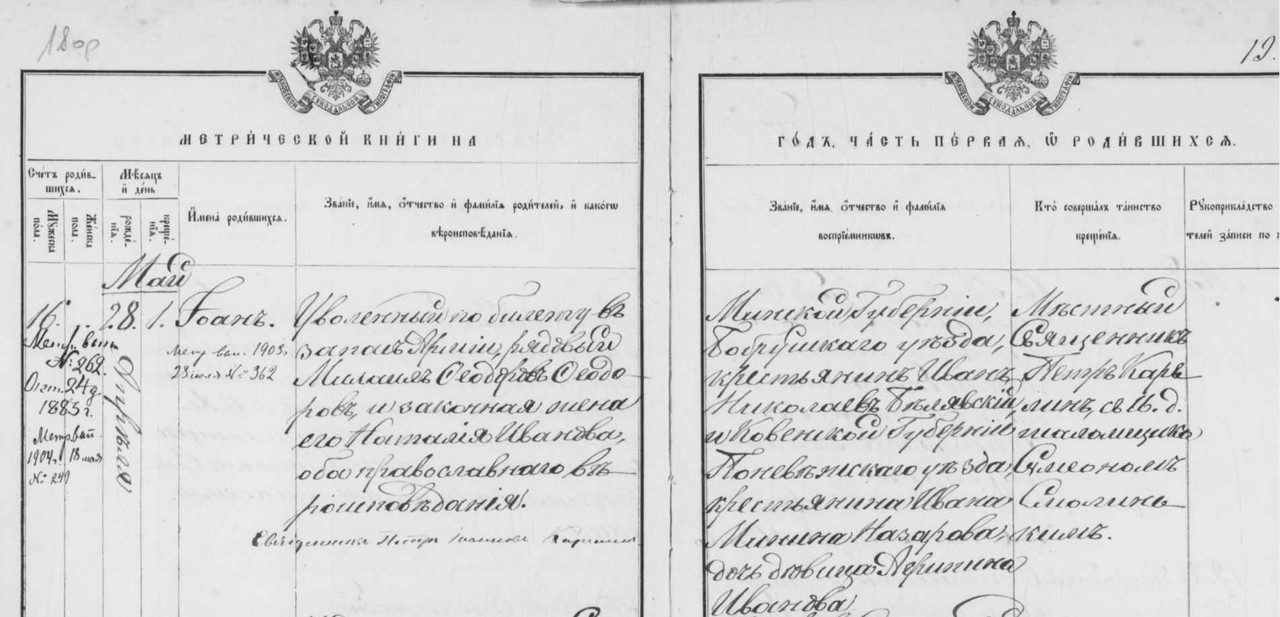 180р
13.
МЕТРИ́ЧЕСКОЙ КНИ́ГИ НА
ГО́ДЪ, ЧА́СТЬ ПЕ́РВАЯ, Ѿ РОДИ́ВШИХСЯ.
Сче́тъ роди́в-
шихся.
Му́жеска пола.
Же́нска пола.
Мѣ́сяцъ
и де́нь
рожде́-
нія.
креще́-
нія.
Имена̀ роди́вшихся.
Зва́ніе, и́мя, о́тчество и фами́лія роди́телей, и како́гѡ
вѣроисповѣ́данія.
Зва́ніе, и́мя, о́тчество и фами́лія
воспріе́мниковъ.
Кто̀ соверша́лъ та́инство
креще́нія.
Рукоприкла́дство
телей за́писи по
Май
16.
28.
1.
Апрѣля
Іоанъ.
Метр. вып. 1903г.
28 іюля № 362
Метр. вып.
№ 262.
Окт. 24 д.
1883 г.
Метр вып.
1904 г. 18 мая
№ 240
Уволенный по билету въ
запасъ Арміи, рядовый
Михаилъ Ѳеодоровъ Ѳеодо-
ровъ и законная жена
его Наталія Иванова,
оба православнаго вѣ-
роисповѣданія.
Священникъ Петръ Іоанновъ
Минской Губерніи,
Бобруйскаго уѣзда,
крестьянинъ Иванъ
Николаевъ Бѣлявскій
и Ковенской Губерніи
Поневѣжскаго уѣзда
крестьянина Ивана
Минина Назарова,
дочь дѣвица
Иванова
Мѣстный
Священникъ
Петръ Каре-
линъ, съ и. д.
псаломщика
Симеономъ
Смолин-
кимъ.